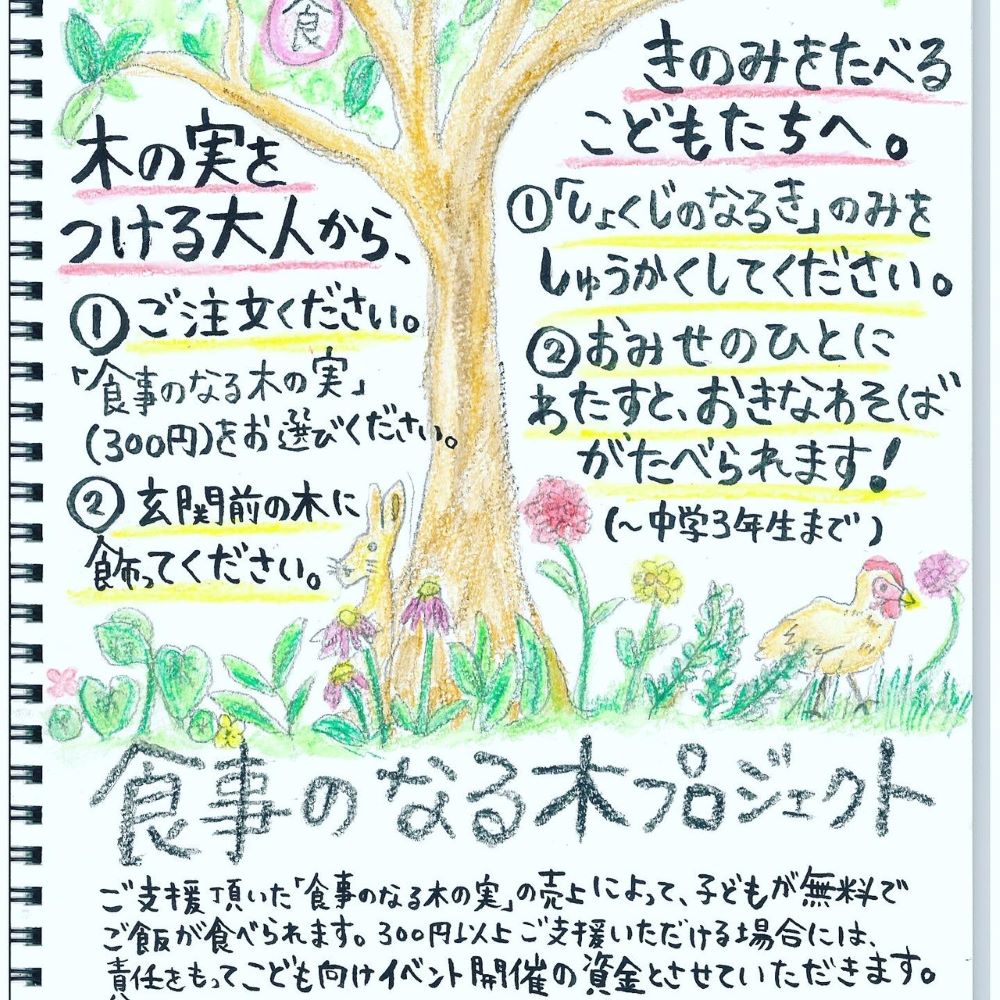 食
木の実を
つける大人から、
①ご注文ください。
「食事のなる木の実」
(300円)をお選びください。
②玄関前の木に
飾ってください。
きのみをたべる
こどもたちへ。
①「しょくじのなるき」のみを
しゅうかくしてください。
②おみせのひとに
わたすと、おきなわそば
がたべられます!
(〜中学3年生まで)
食事のなる木プロジェクト
ご支援頂いた「食事のなる木の実」の売上によって、子どもが無料で
ご飯が食べられます。300円以上ご支援いただける場合には、
責任をもってこども向けイベント開催の資金とさせていただきます。